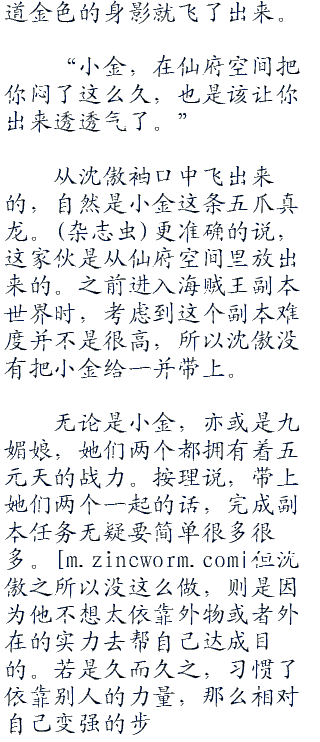 道金色的身影就飞了出来。
“小金，在仙府空间把
你闷了这么久，也是该让你
出来透透气了。”
从沈傲袖口中飞出来
的，自然是小金这条五爪真
龙。(杂志虫)更准确的说，
这家伙是从仙府空间里放出
来的。之前进入海贼王副本
世界时，考虑到这个副本难
度并不是很高，所以沈傲没
有把小金给一并带上。
无论是小金，亦或是九
媚娘，她们两个都拥有着五
元天的战力。按理说，带上
她们两个一起的话，完成副
本任务无疑要简单很多很
多。[m.zincworm.com]但沈
傲之所以没这么做，则是因
为他不想太依靠外物或者外
在的实力去帮自己达成目
的。若是久而久之，习惯了
依靠别人的力量，那么相对
自己变强的步